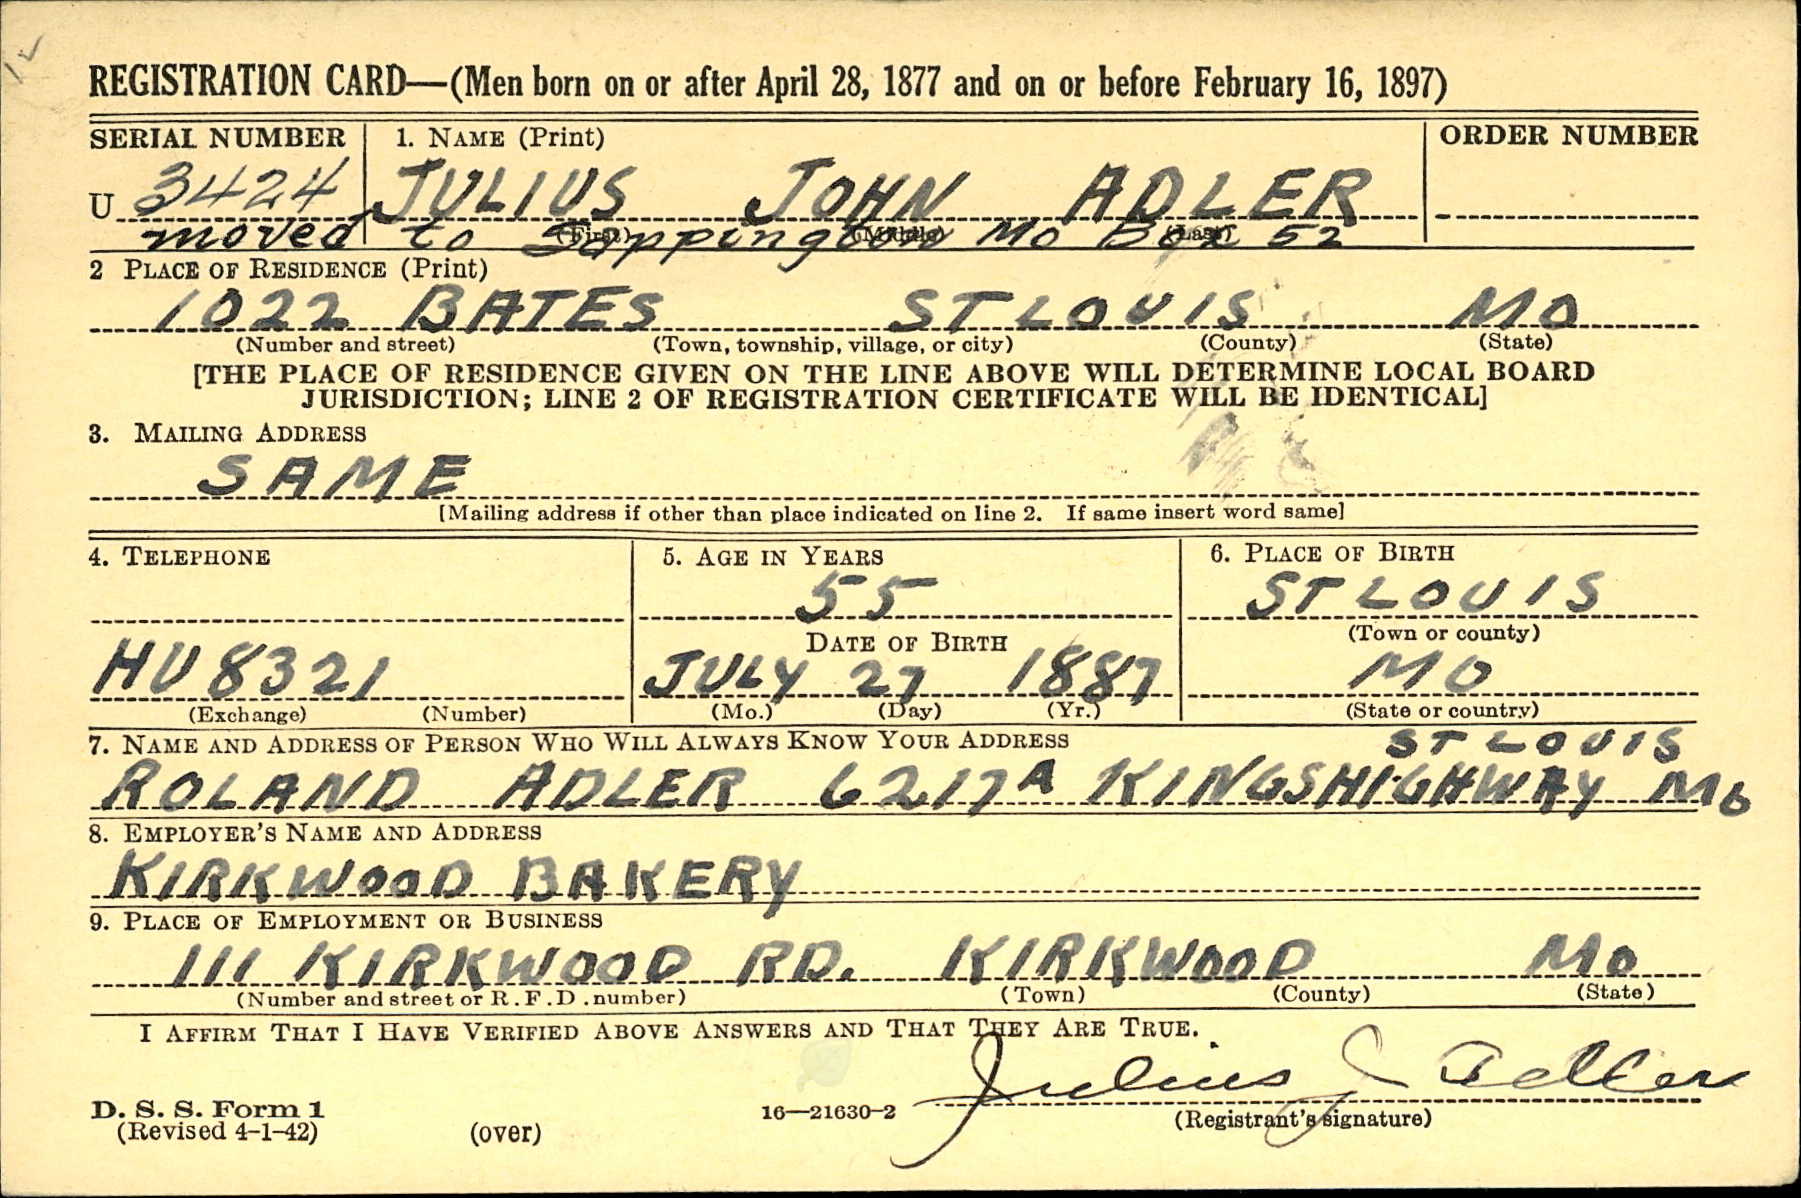 REGISTRATION CARD—(Men born on or after April 28, 1877 and on or before February 16, 1897)
SERIAL NUMBER 1. NAME (Print) ORDER NUMBER
U 3424 JULIUS JOHN ADLER
(First) (Middle) (Last)
moved to Sappington Mo Box 52
2 PLACE OF RESIDENCE (Print)
1022 BATES ST LOUIS MO
(Number and street) (Town, township, village, or city) (County) (State)
[THE PLACE OF RESIDENCE GIVEN ON THE LINE ABOVE WILL DETERMINE LOCAL BOARD
JURISDICTION; LINE 2 OF REGISTRATION CERTIFICATE WILL BE IDENTICAL]
3. MAILING ADDRESS
SAME
[Mailing address if other than place indicated on line 2. If same insert word same]
4. TELEPHONE 5. AGE IN YEARS 6. PLACE OF BIRTH
55 ST LOUIS
DATE OF BIRTH (Town or county)
HU 8321 JULY 27 1887 MO
(Exchange) (Number) (Mo.) (Day) (Yr.) (State or country)
7. NAME AND ADDRESS OF PERSON WHO WILL ALWAYS KNOW YOUR ADDRESS ST LOUIS
ROLAND ADLER 6217A KINGSHIGHWAY MO
8. EMPLOYER'S NAME AND ADDRESS
KIRKWOOD BAKERY
9. PLACE OF EMPLOYMENT OR BUSINESS
111 KIRKWOOD RD. KIRKWOOD MO
(Number and street or R.F.D. number) (Town) (County) (State)
I AFFIRM THAT I HAVE VERIFIED ABOVE ANSWERS AND THAT THEY ARE TRUE.
Julius J Adler
D. S. S. Form 1 16—21630-2 (Registrant's signature)
(Revised 4-1-42) (over)